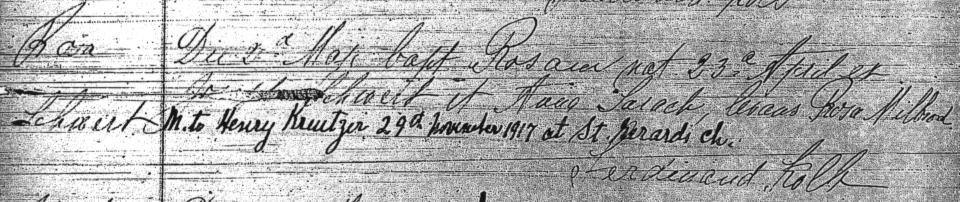 Rosa Die 2ª Maii bapt Rosam nat 23ª April ex
Jos Schwert et Anna Sarach, levans Rosa Milbrod
Schwert M. to Henry Kreutzer 29th November 1917 at St. Gerards ch.
Ferdinand Kolb